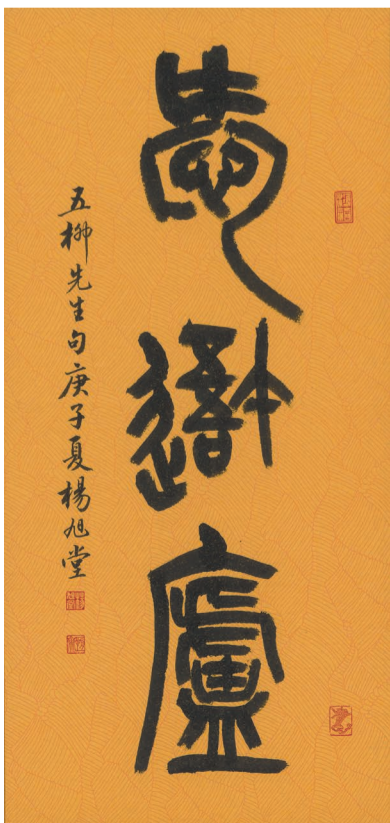 愛吾廬
五柳先生句庚子夏楊旭堂